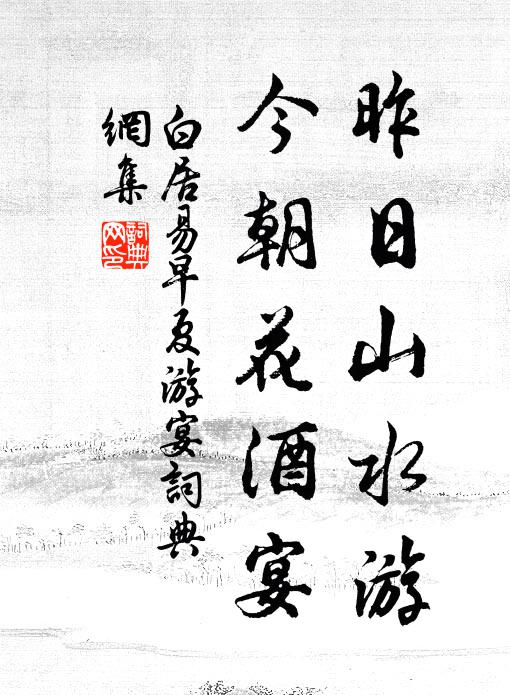 昨日山水游
今朝花酒宴
白居易早夏游宴詞典
網集
詞典
网印